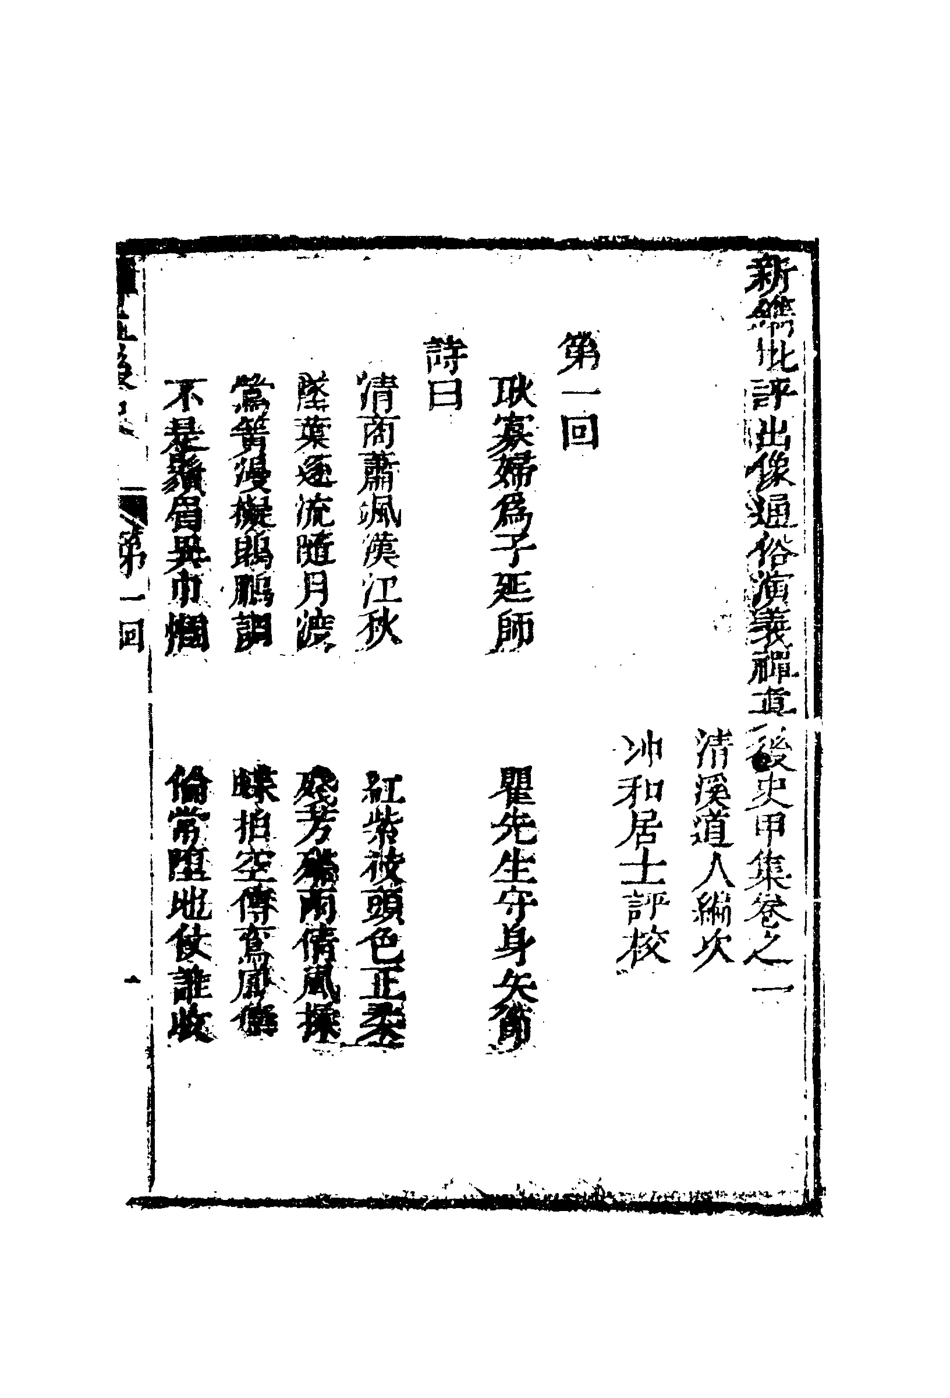 新鐫批評出像通俗演義禪真後史甲集卷之一
清溪道人編次
冲和居士評校
第一回
耿寡婦為子延師 瞿先生守身矢節
詩曰
清商蕭颯漢江秋 紅紫枝頭色正柔
墜葉逐流隨月渡 殘芳殢雨倩風揉
鶯簧漫擬鵾鵬調 蝶拍空傳鸞鳳儔
不是鬚眉異巾幗 倫常墮地仗誰收
禪真後史 第一回 一